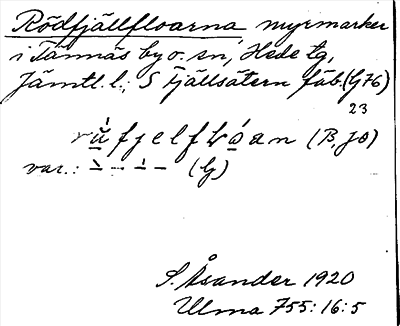 Rödfjällfloarna myrmarker
i Tännäs by o. sn, Hede tg,
Jämtl. l.; S Fjällsätern fäb. (G76)
23
rù̱fjelfɫó̱an (B, J8)
var.: ˋ – – ˊ – (G)
S. Åsander 1920
Ulma 755:16:5